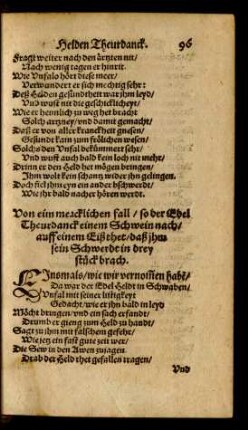 Helden Theurdanck. 96
Fragt weiter nach den ärtzten nit/
Nach wenig tagen er hinrit.
Wie Unfalo hört diese meer/
Verwundert er sich mechtig sehr:
Deß Helden gesundtheit war ihm leyd/
Und wust nit die geschickligkeyt/
Wie er heimlich zu weg het bracht
Solch artzney/und damit gemacht/
Daß er von aller kranckheit gnasen/
Gesündt kam zum frölichen wasen/
Solchs den Unfal bekümmert sehr/
Und wust auch bald kein loch nit mehr/
Drinn er den Held het mögen bringen/
Ihm wolt kein schantz wider ihn gelingen.
Doch fiel ihm eyn ein ander bschwerdt/
Wie ihr bald nacher hören werdt.
Von eim mercklichen fall / so der Edel
Theurdanck einem Schwein nach/
auff einem Eiß thet/ daß jhm
sein Schwerdt in drey
stück brach.
EInsmals/wie wir vernommen habt/
Da war der Edel Heldt in Schwaben/
Unfal mit seiner listigkeyt
Gedacht/wie er ihn bald in leyd
Möcht bringen/und ein sach erfandt/
Drumb er gieng zum Held zu handt/
Sagt zu ihm mit falschem gesecht/
Wie jetz ein fast gute zeit wer/
Die Sew in den Awen zujagen
Drab der Held thet gefallen tragen/
Und